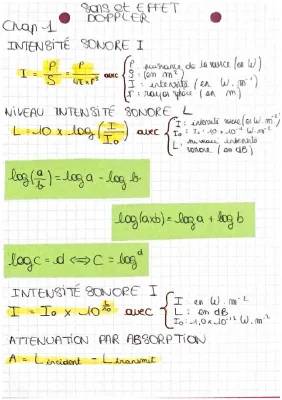 SONS et EFFET
DOPPLER
Chap-1
INTENSITÉ SONORE I
I = P/S = P/4π×r² avec { P : puissance de la source (en W)
S : (en m²)
I : intensité (en W.m⁻²)
r : rayon sphère (en m)
NIVEAU INTENSITÉ SONORE L
L = 10 × log(I/I₀) avec { I : intensité sonore (en W.m⁻²)
I₀ : I₀ = 1,0 × 10⁻¹² W.m⁻²
L : niveau intensité
sonore (en dB)
log(a/b) = log a - log b
log(a×b) = log a + log b
log c = d ⟺ C = log^d
INTENSITÉ SONORE I
I = I₀ × 10^(L/10) avec { I : en W.m⁻²
L : en dB
I₀ : 1,0×10⁻¹² W.m⁻²
ATTENUATION PAR ABSORPTION
A = L incident - L transmit